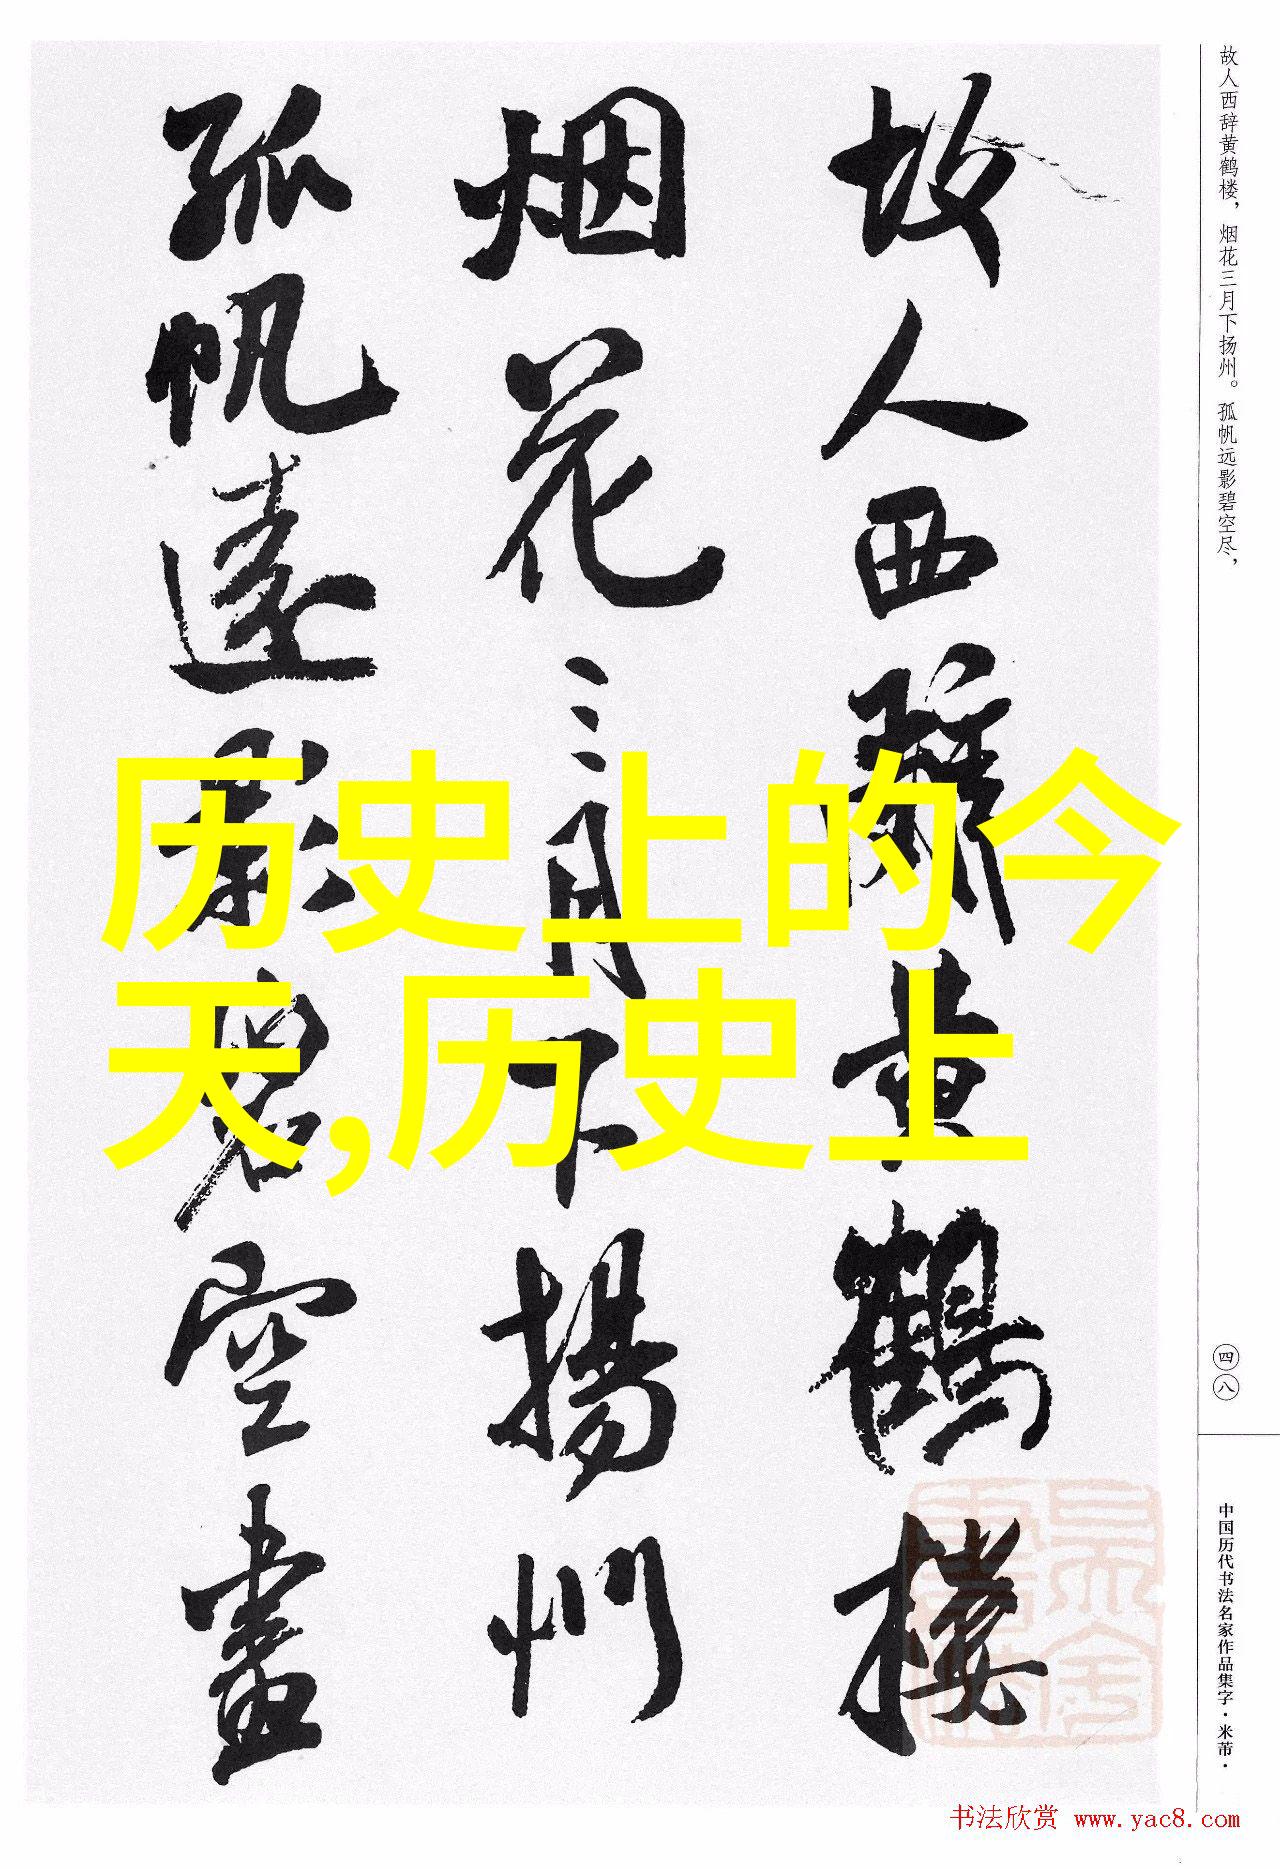 故人西辞黄鹤楼，烟花三月下扬州。孤帆远影碧空尽，
故人西辭黄鶴楼
烟花三月下揚州
孤帆遠影碧空盡
历史上的今
天,历史上
四八
中国历代书法名家作品集字·米芾·
书法欣赏 www.yac8.com